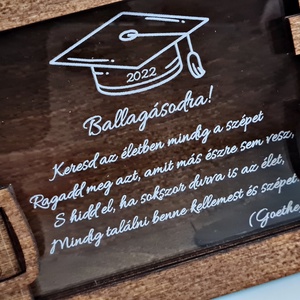 2022
Ballagásodra!
Keresd az életben mindig a szépet
Ragadd meg azt, amit más észre sem vesz,
S hidd el, ha sokszor durva is az élet,
Mindig találni benne kellemest és szépet.
(Goethe